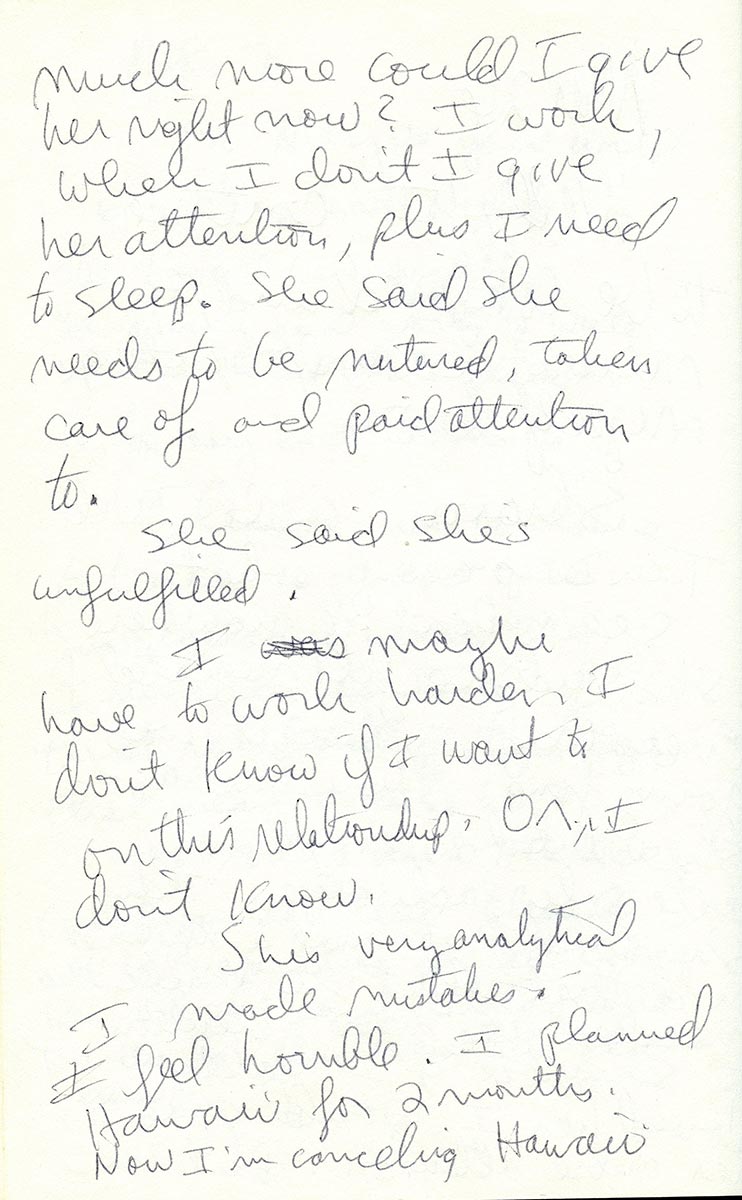 much more could I give
her right now? I work,
when I don't I give
her attention, plus I need
to sleep. She said she
needs to be nutured, taken
care of and paid attention
to.
She said she's
unfulfilled.
I was maybe
have to work harder, I
don't know if I want to
on this relationship. Oh, I
don't know.
She's very analytical
I made mistakes.
I feel horrible. I planned
Hawaii for 2 months.
Now I'm canceling Hawaii